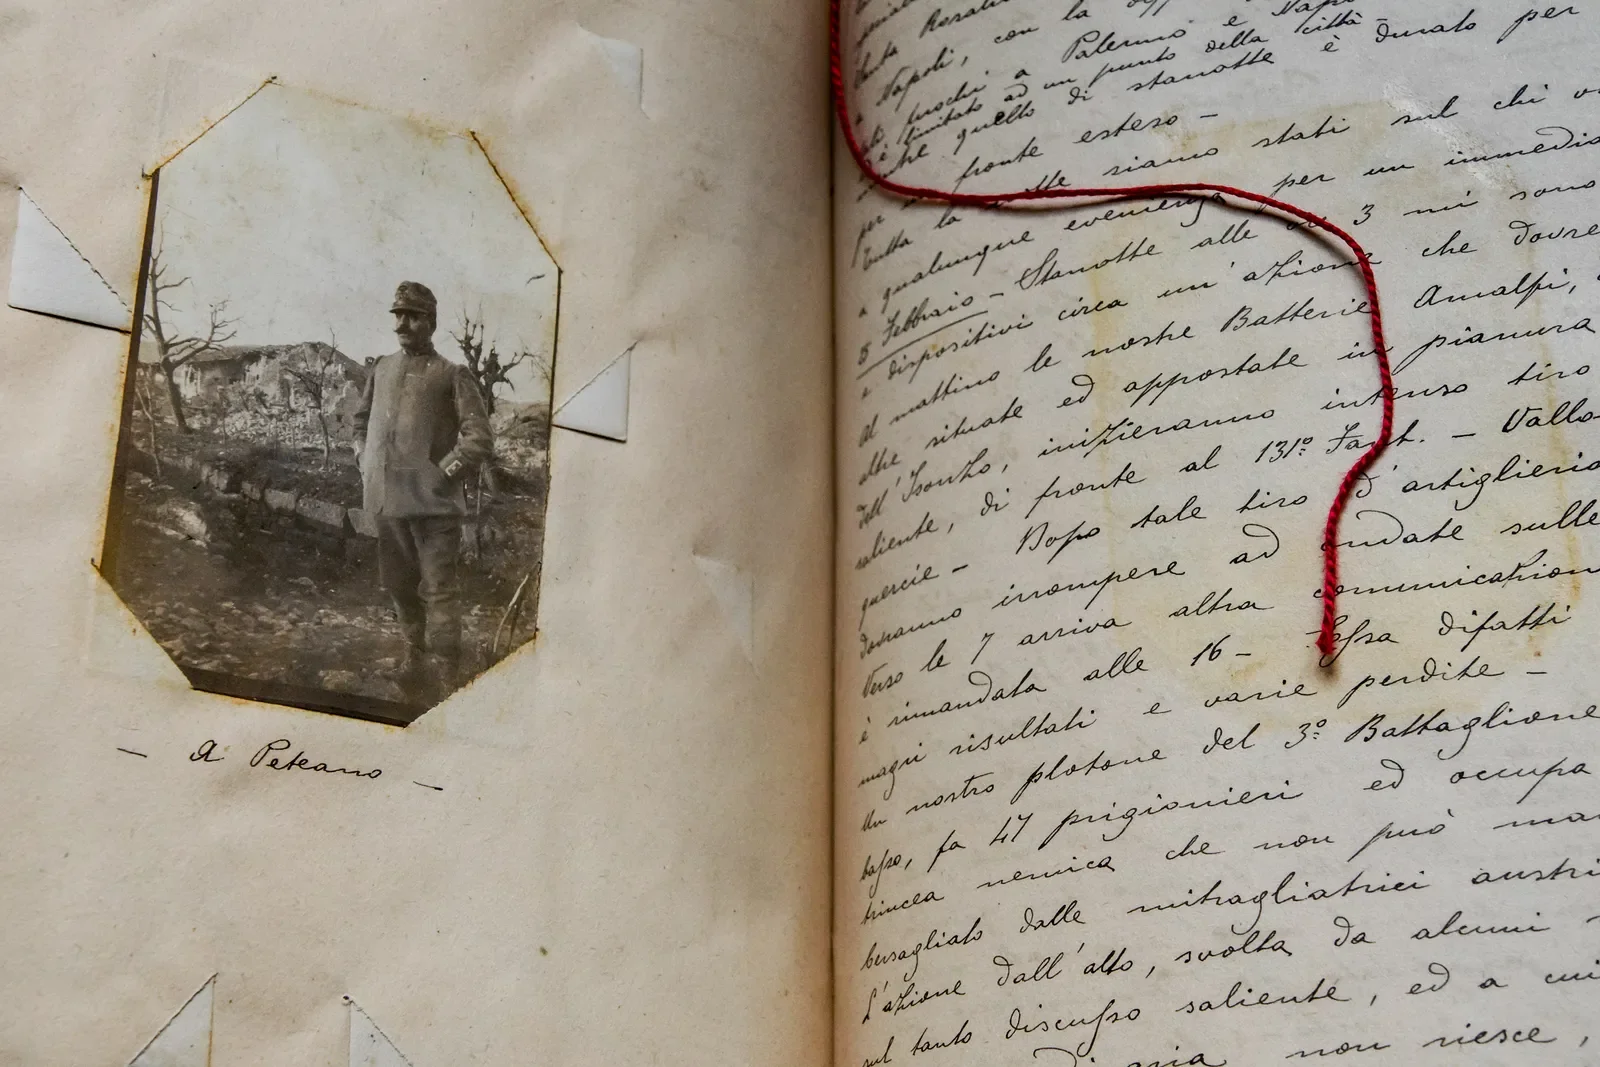 — A Peteano —
Santa Rosalia
Napoli, con la
a Palermo e Napoli
limitato ad un punto della città -
quello di stanotte è durato per
fronte esteso -
Tutta la notte siamo stati sul chi
a qualunque evenienza per un immedia
5 Febbraio - Stanotte alle ore 3 mi sono
dispositivi circa un'azione che dovre
al mattino le nostre Batterie Amalfi,
situate ed appostate in pianura
dell'Isonzo, inizieranno intenso tiro
saliente, di fronte al 131º Fant. - Vallo
quercie - Dopo tale tiro d'artiglieria
dovranno irrompere ad ondate sulle
Verso le 7 arriva altra comunicazion
è rimandata alle 16 - Essa difatti
magri risultati e varie perdite -
Un nostro plotone del 3º Battaglione
basso, fa 47 prigionieri ed occupa
trincea nemica che non può man
bersagliato dalle mitragliatrici austri
L'azione dall'alto, svolta da alcuni
sul tanto discusso saliente, ed a cui
non riesce,